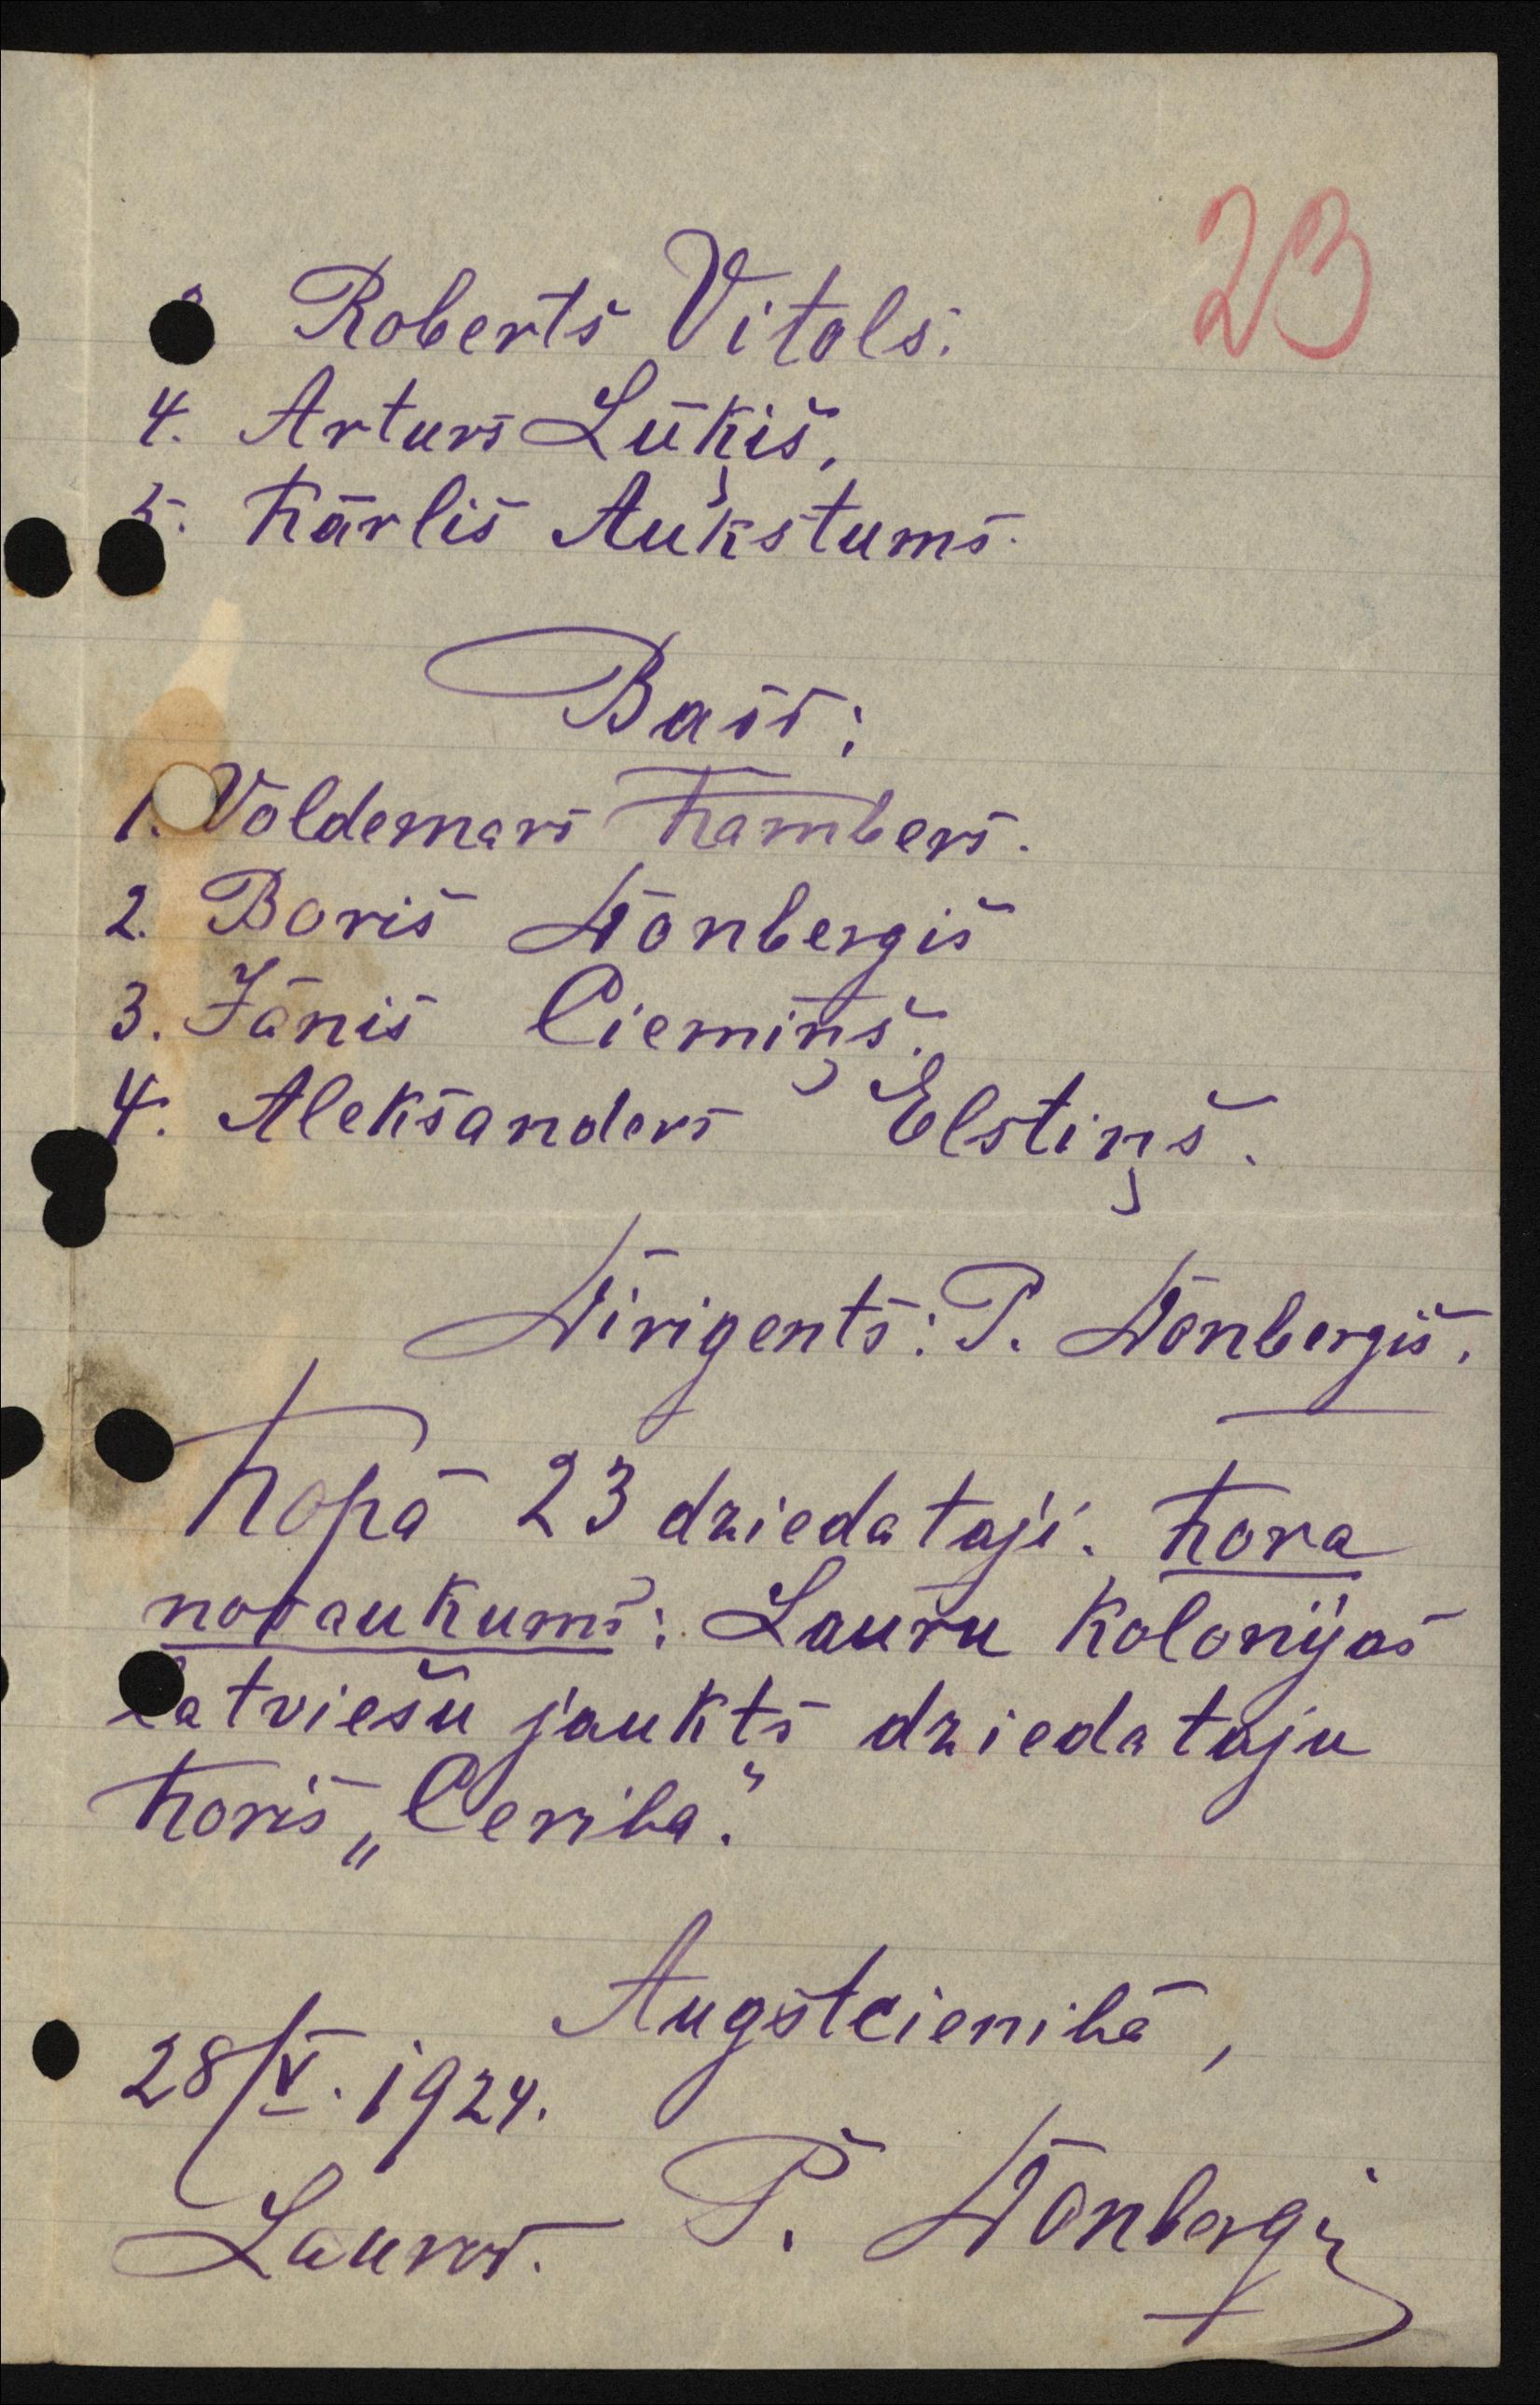 23
Roberts Vitols.
4. Arturs Lūķis,
5. Kārlis Aukstums.
Basi:
1. Voldemars Kambers.
2. Boris Donbergis
3. Jānis Ciemiņš.
4. Aleksanders Elstiņš.
Dirigents: P. Donbergis.
Kopā 23 dziedataji. Kora
nosaukums: Lauru Kolonijas
latviešu jaukts dziedataju
Koris „Ceriba."
Augstcienibā,
28/V. 1924.
Lauros. P. Donbergis